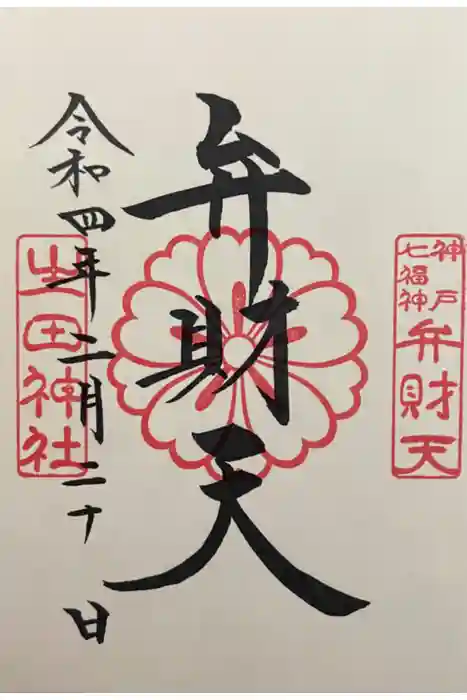 神戸
七福神
弁財天
弁財天
令和四年二月二十日
生田神社